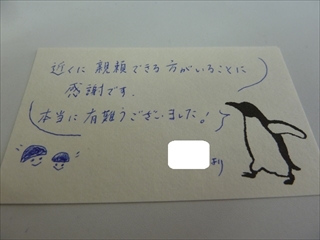 近くに親頼できる方がいることに
感謝です。
本当に有難うございました!
より